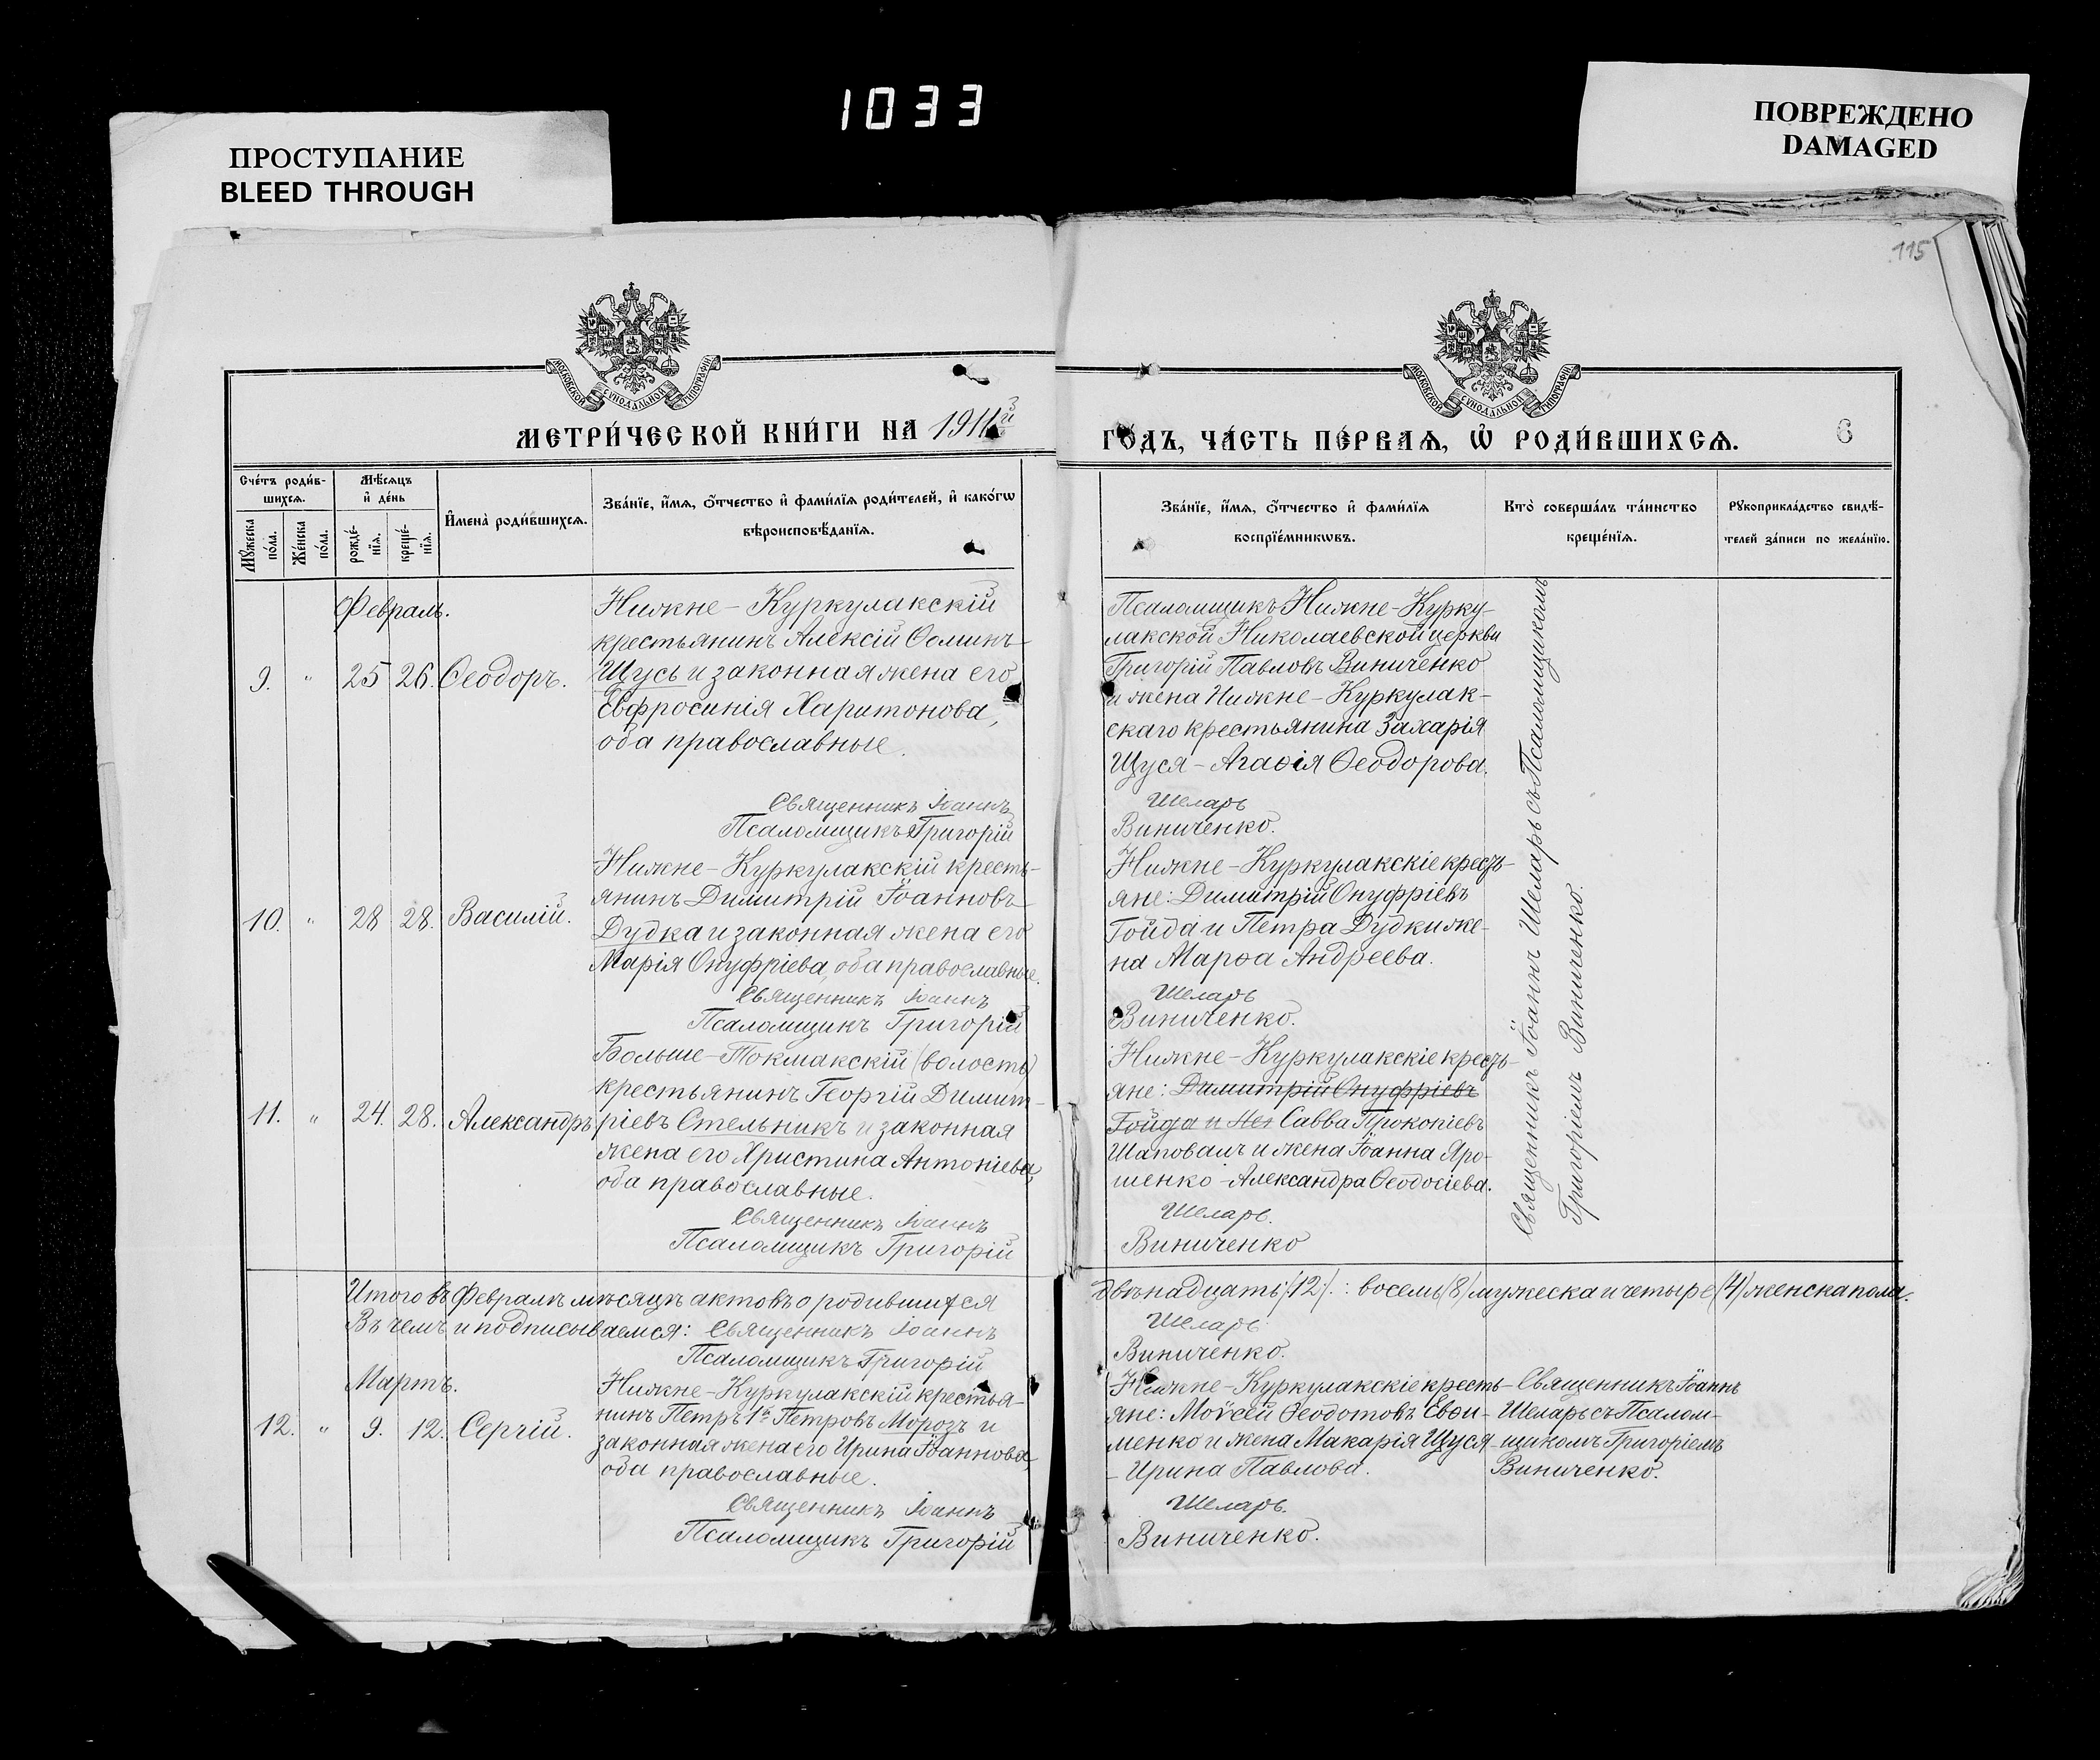 1033
ПРОСТУПАНИЕ
BLEED THROUGH
ПОВРЕЖДЕНО
DAMAGED
115
МОСКОВСКОЙ СѴНОДАЛЬНОЙ ТИПОГРАФІИ
МОСКОВСКОЙ СѴНОДАЛЬНОЙ ТИПОГРАФІИ
МЕТРИ́ЧЕСКОЙ КНИ́ГИ НА 1911й
ГО́ДЪ, ЧА́СТЬ ПЕ́РВАѦ, Ѡ҆ РОДИ́ВШИХСѦ.
6
Сче́тъ роди́в-
шихсѧ.
Мѣ́сѧцъ
и҆ де́нь
Мꙋ́жеска
по́ла.
Же́нска
по́ла.
рожде́-
нїѧ.
креще́-
нїѧ.
И҆мена̀ роди́вшихсѧ.
Зва́нїе, и҆́мѧ, ѻ҆́тчество и҆ фами́лїѧ роди́телей, и҆ како́гѡ
вѣроисповѣ́данїѧ.
Зва́нїе, и҆́мѧ, ѻ҆́тчество и҆ фами́лїѧ
воспрїе́мникѡвъ.
Кто̀ соверша́лъ та́инство
креще́нїѧ.
Рꙋкоприкла́дство свидѣ́-
телей за́писи по жела́нїю.
Февраль.
9. " 25 26. Ѳеодоръ.
Нижне-Куркулакскій
крестьянинъ Алексій Ѳоминъ
Щусь и законная жена его
Евфросинія Харитонова,
оба православные.
Священникъ Іоаннъ
Псаломщикъ Григорій
Псаломщикъ Нижне-Курку-
лакской Николаевской церкви
Григорій Павловъ Виниченко
и жена Нижне-Куркулак-
скаго крестьянина Захарія
Щуся - Агаѳія Ѳеодорова.
Шеларь
Виниченко.
10. " 28 28. Василій.
Нижне-Куркулакскій кресть-
янинъ Димитрій Іоанновъ
Дудка и законная жена его
Марія Онуфріева, оба православные.
Священникъ Іоаннъ
Псаломщикъ Григорій
Нижне-Куркулакскіе кресть-
яне: Димитрій Онуфріевъ
Гойда и Петра Дудки же-
на Марѳа Андреева.
Шеларь
Виниченко.
11. " 24. 28. Александръ
Больше-Токмакскій (волость)
крестьянинъ Георгій Димит-
ріевъ Стельникъ и законная
жена его Христина Антоніева,
оба православные.
Священникъ Іоаннъ
Псаломщикъ Григорій
Нижне-Куркулакскіе кресть-
яне: Димитрій Онуфріевъ
Гойда и Савва Прокопіевъ
Шаповалъ и жена Іоанна Яро-
шенко - Александра Ѳеодосіева.
Шеларь.
Виниченко
Священникъ Іоаннъ Шеларь съ Псаломщикомъ
Григоріемъ Виниченко.
Итого въ Февралѣ мѣсяцѣ актовъ о родившихся
двѣнадцать (12).: восемь (8) мужеска и четыре (4) женска пола.
Въ чемъ и подписываемся: Священникъ Іоаннъ
Шеларь
Псаломщикъ Григорій
Виниченко.
Мартъ.
12. " 9. 12. Сергій.
Нижне-Куркулакскій крестья-
нинъ Петръ 1й Петровъ Морозъ и
законная жена его Ирина Іоаннова,
оба православные.
Священникъ Іоаннъ
Псаломщикъ Григорій
Нижне-Куркулакскіе кресть-
яне: Моѵсей Ѳеодотовъ Евѳи-
менко и жена Макарія Щуся
- Ирина Павлова.
Шеларь.
Виниченко.
Священникъ Іоаннъ
Шеларь съ Псалом-
щикомъ Григоріемъ
Виниченко.